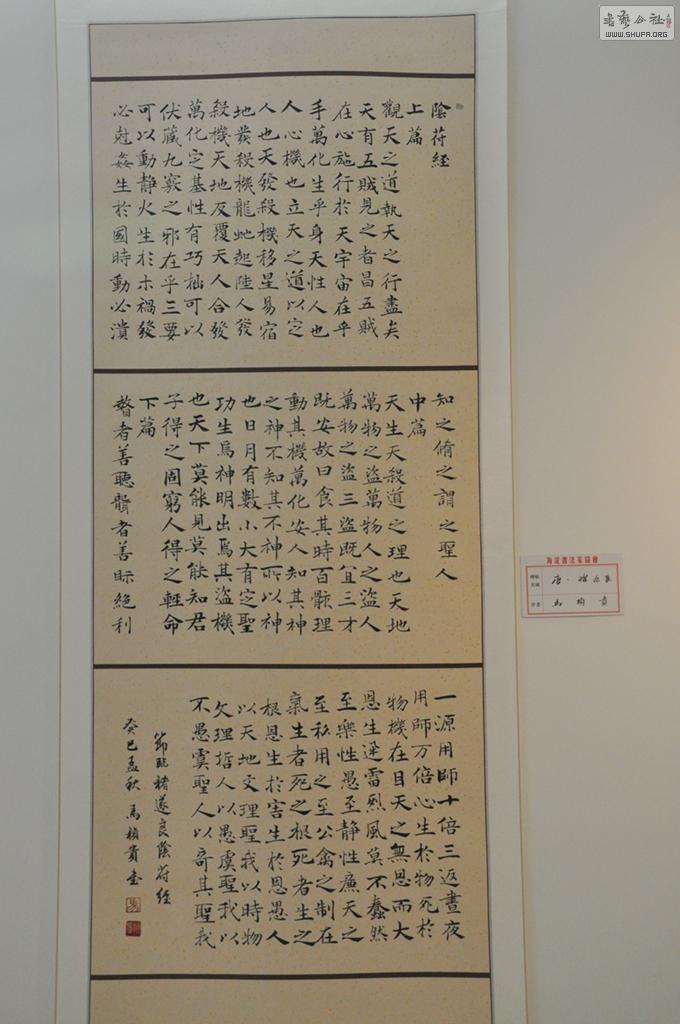 陰苻經
上篇
觀天之道執天之行盡矣
天有五賊見之者昌五賊
在心施行於天宇宙在乎
手萬化生乎身天性人也
人心機也立天之道以定
人也天發殺機移星易宿
地發殺機龍虵起陸人發
殺機天地反覆天人合發
萬化定基性有巧拙可以
伏藏九竅之邪在乎三要
可以動靜火生於木禍發
必尅姦生於國時動必潰
知之脩之謂之聖人
中篇
天生天殺道之理也天地
萬物之盜萬物人之盜人
萬物之盜三盜既宜三才
既安故曰食其時百骸理
動其機萬化安人知其神
之神不知其不神所以神
也日月有數小大有定聖
功生焉神明出焉其盜機
也天下莫能見莫能知君
子得之固窮人得之輕命
下篇
瞽者善聽聾者善眎絕利
一源用師十倍三返晝夜
用師万倍心生於物死於
物機在目天之無恩而大
恩生迅雷烈風莫不蠢然
至樂性愚至静性廉天之
至私用之至公禽之制在
氣生者死之根死者生之
根恩生於害生於恩愚人
以天地文理聖我以時物
文理哲人以愚虞聖我以
不愚虞聖人以奇其聖我
節臨褚遂良陰苻經
癸巳孟秋 馬楨貴書
海淀書法家協會
唐·褚遂良
作者
書藝公社
WWW.SHUFA.ORG